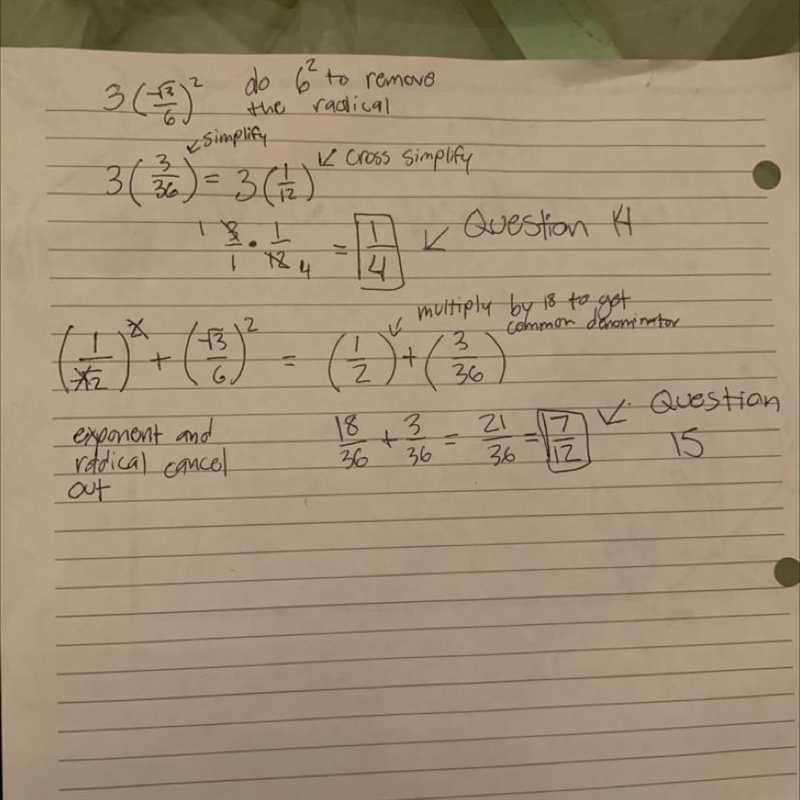 3(√3/6)² do 6² to remove
the radical
↙ simplify
3(3/36) = 3(1/12) ↙ cross simplify
1 3/1 · 1/12 4 = 1/4 ↙ Question 14
↙ multiply by 18 to get
common denominator
(1/√2)² + (√3/6)² = (1/2) + (3/36)
exponent and
radical cancel
out
18/36 + 3/36 = 21/36 = 7/12 ↙ Question
15